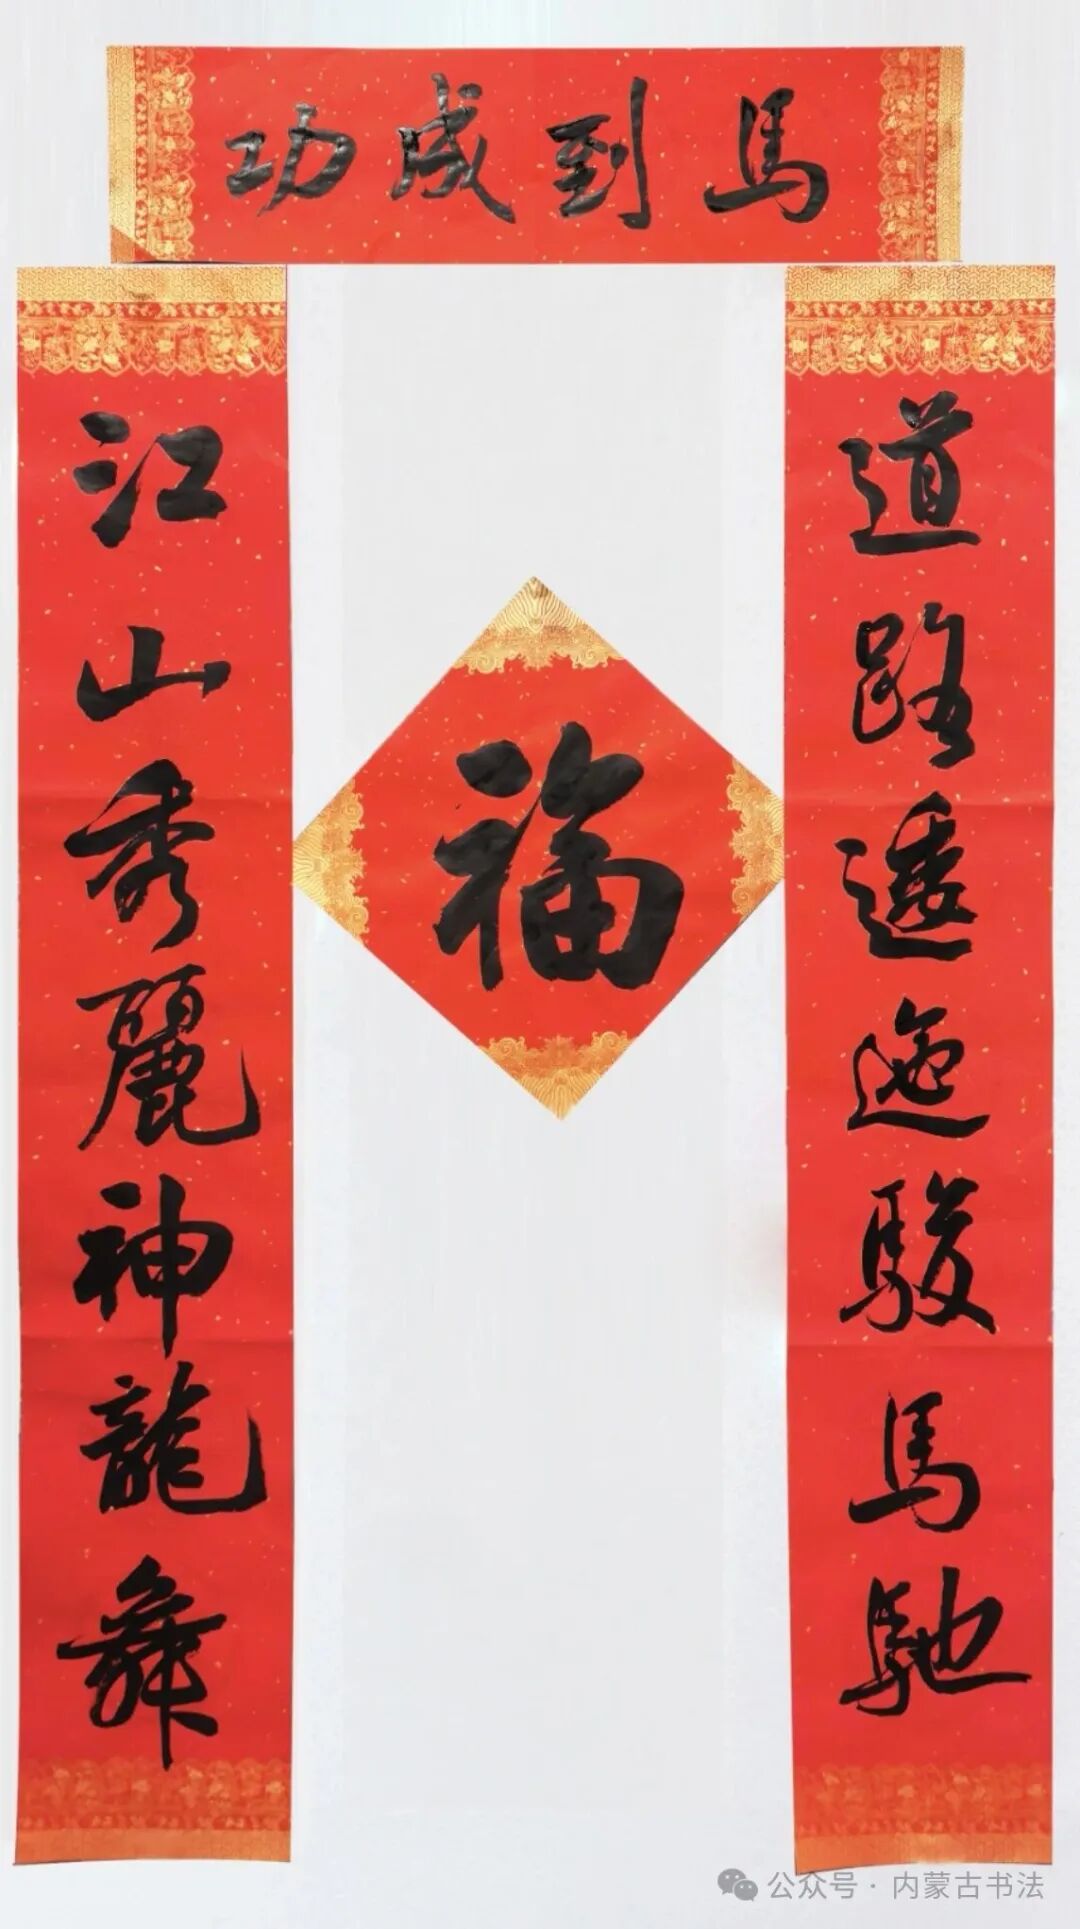 馬到成功
道路逶迤駿馬馳
江山秀麗神龍舞
福
公众号·内蒙古书法